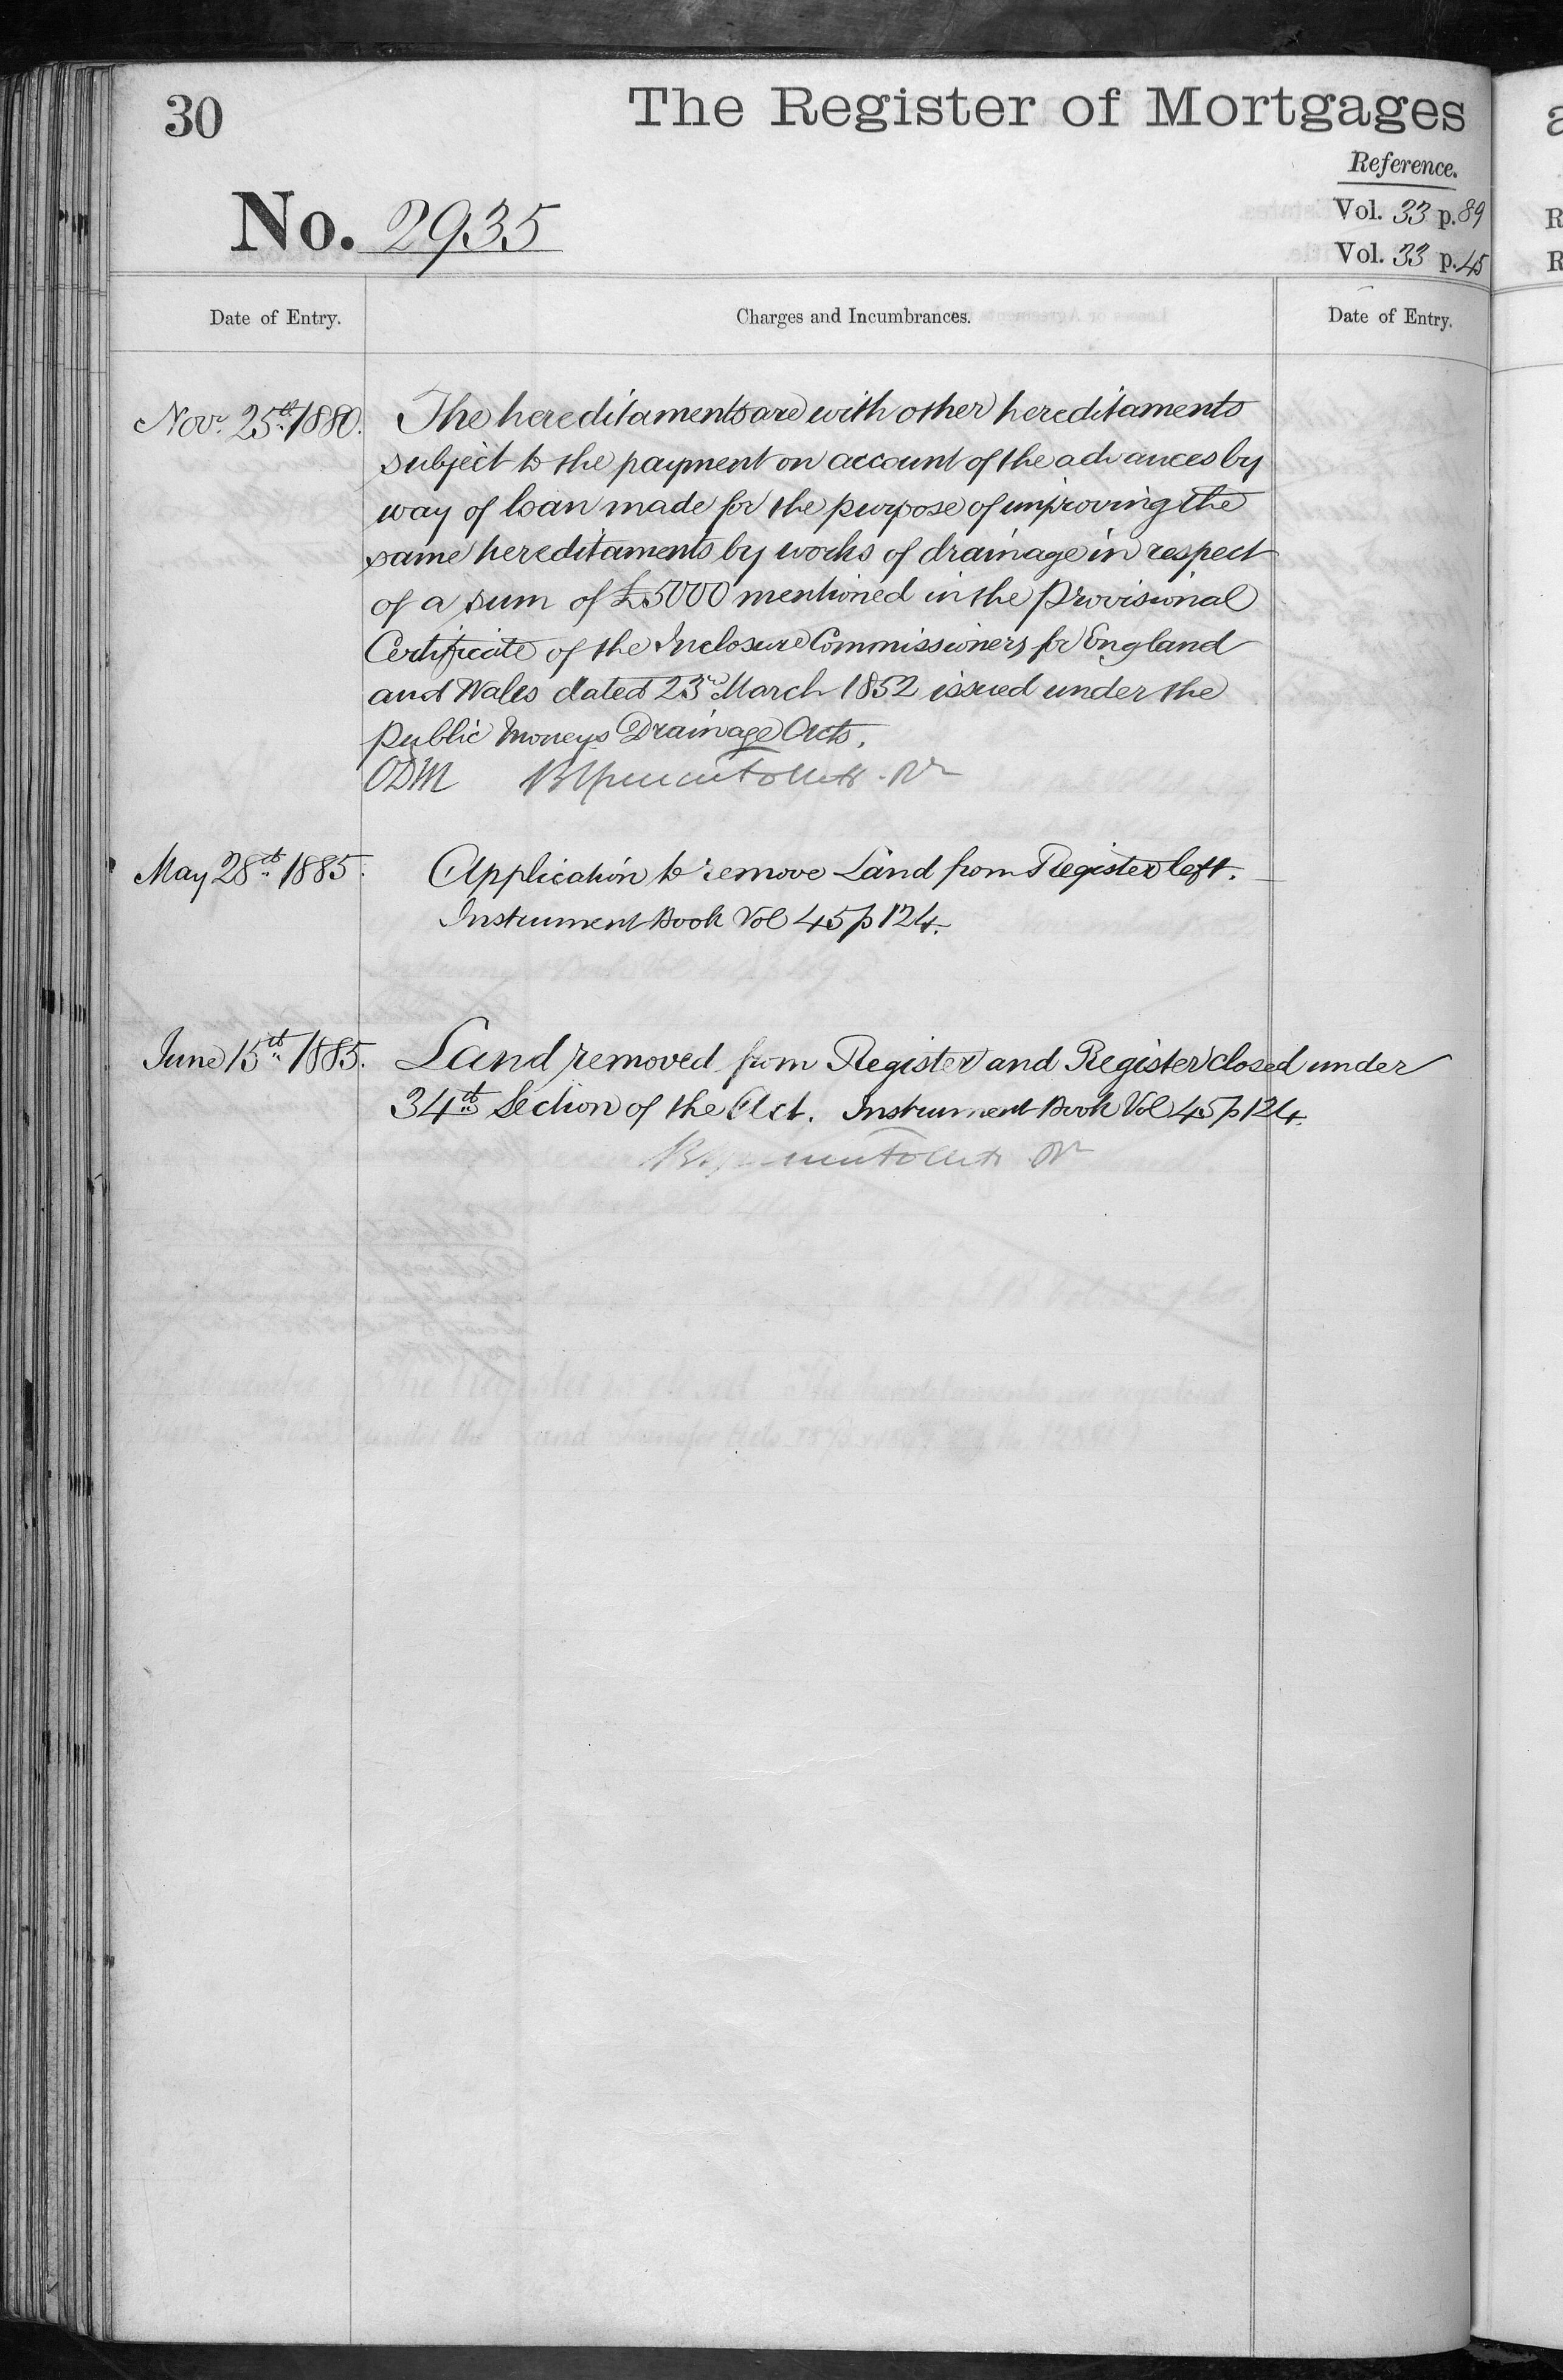 30
The Register of Mortgages
Reference.
No. 2935
Vol. 33 p. 89
Vol. 33 p. 45
Date of Entry.
Charges and Incumbrances.
Date of Entry.
Novr. 25th 1880.
The hereditaments are with other hereditaments
subject to the payment on account of the advances by
way of loan made for the purpose of improving the
same hereditaments by works of drainage in respect
of a sum of £5000 mentioned in the Provisional
Certificate of the Inclosure Commissioners for England
and Wales dated 23rd March 1852 issued under the
Public Moneys Drainage Acts.
ODM
May 28th 1885.
Application to remove Land from Register left.
Instrument Book Vol 45 p 124.
June 15th 1885.
Land removed from Register and Register closed under
34th Section of the Act. Instrument Book Vol 45 p 124.